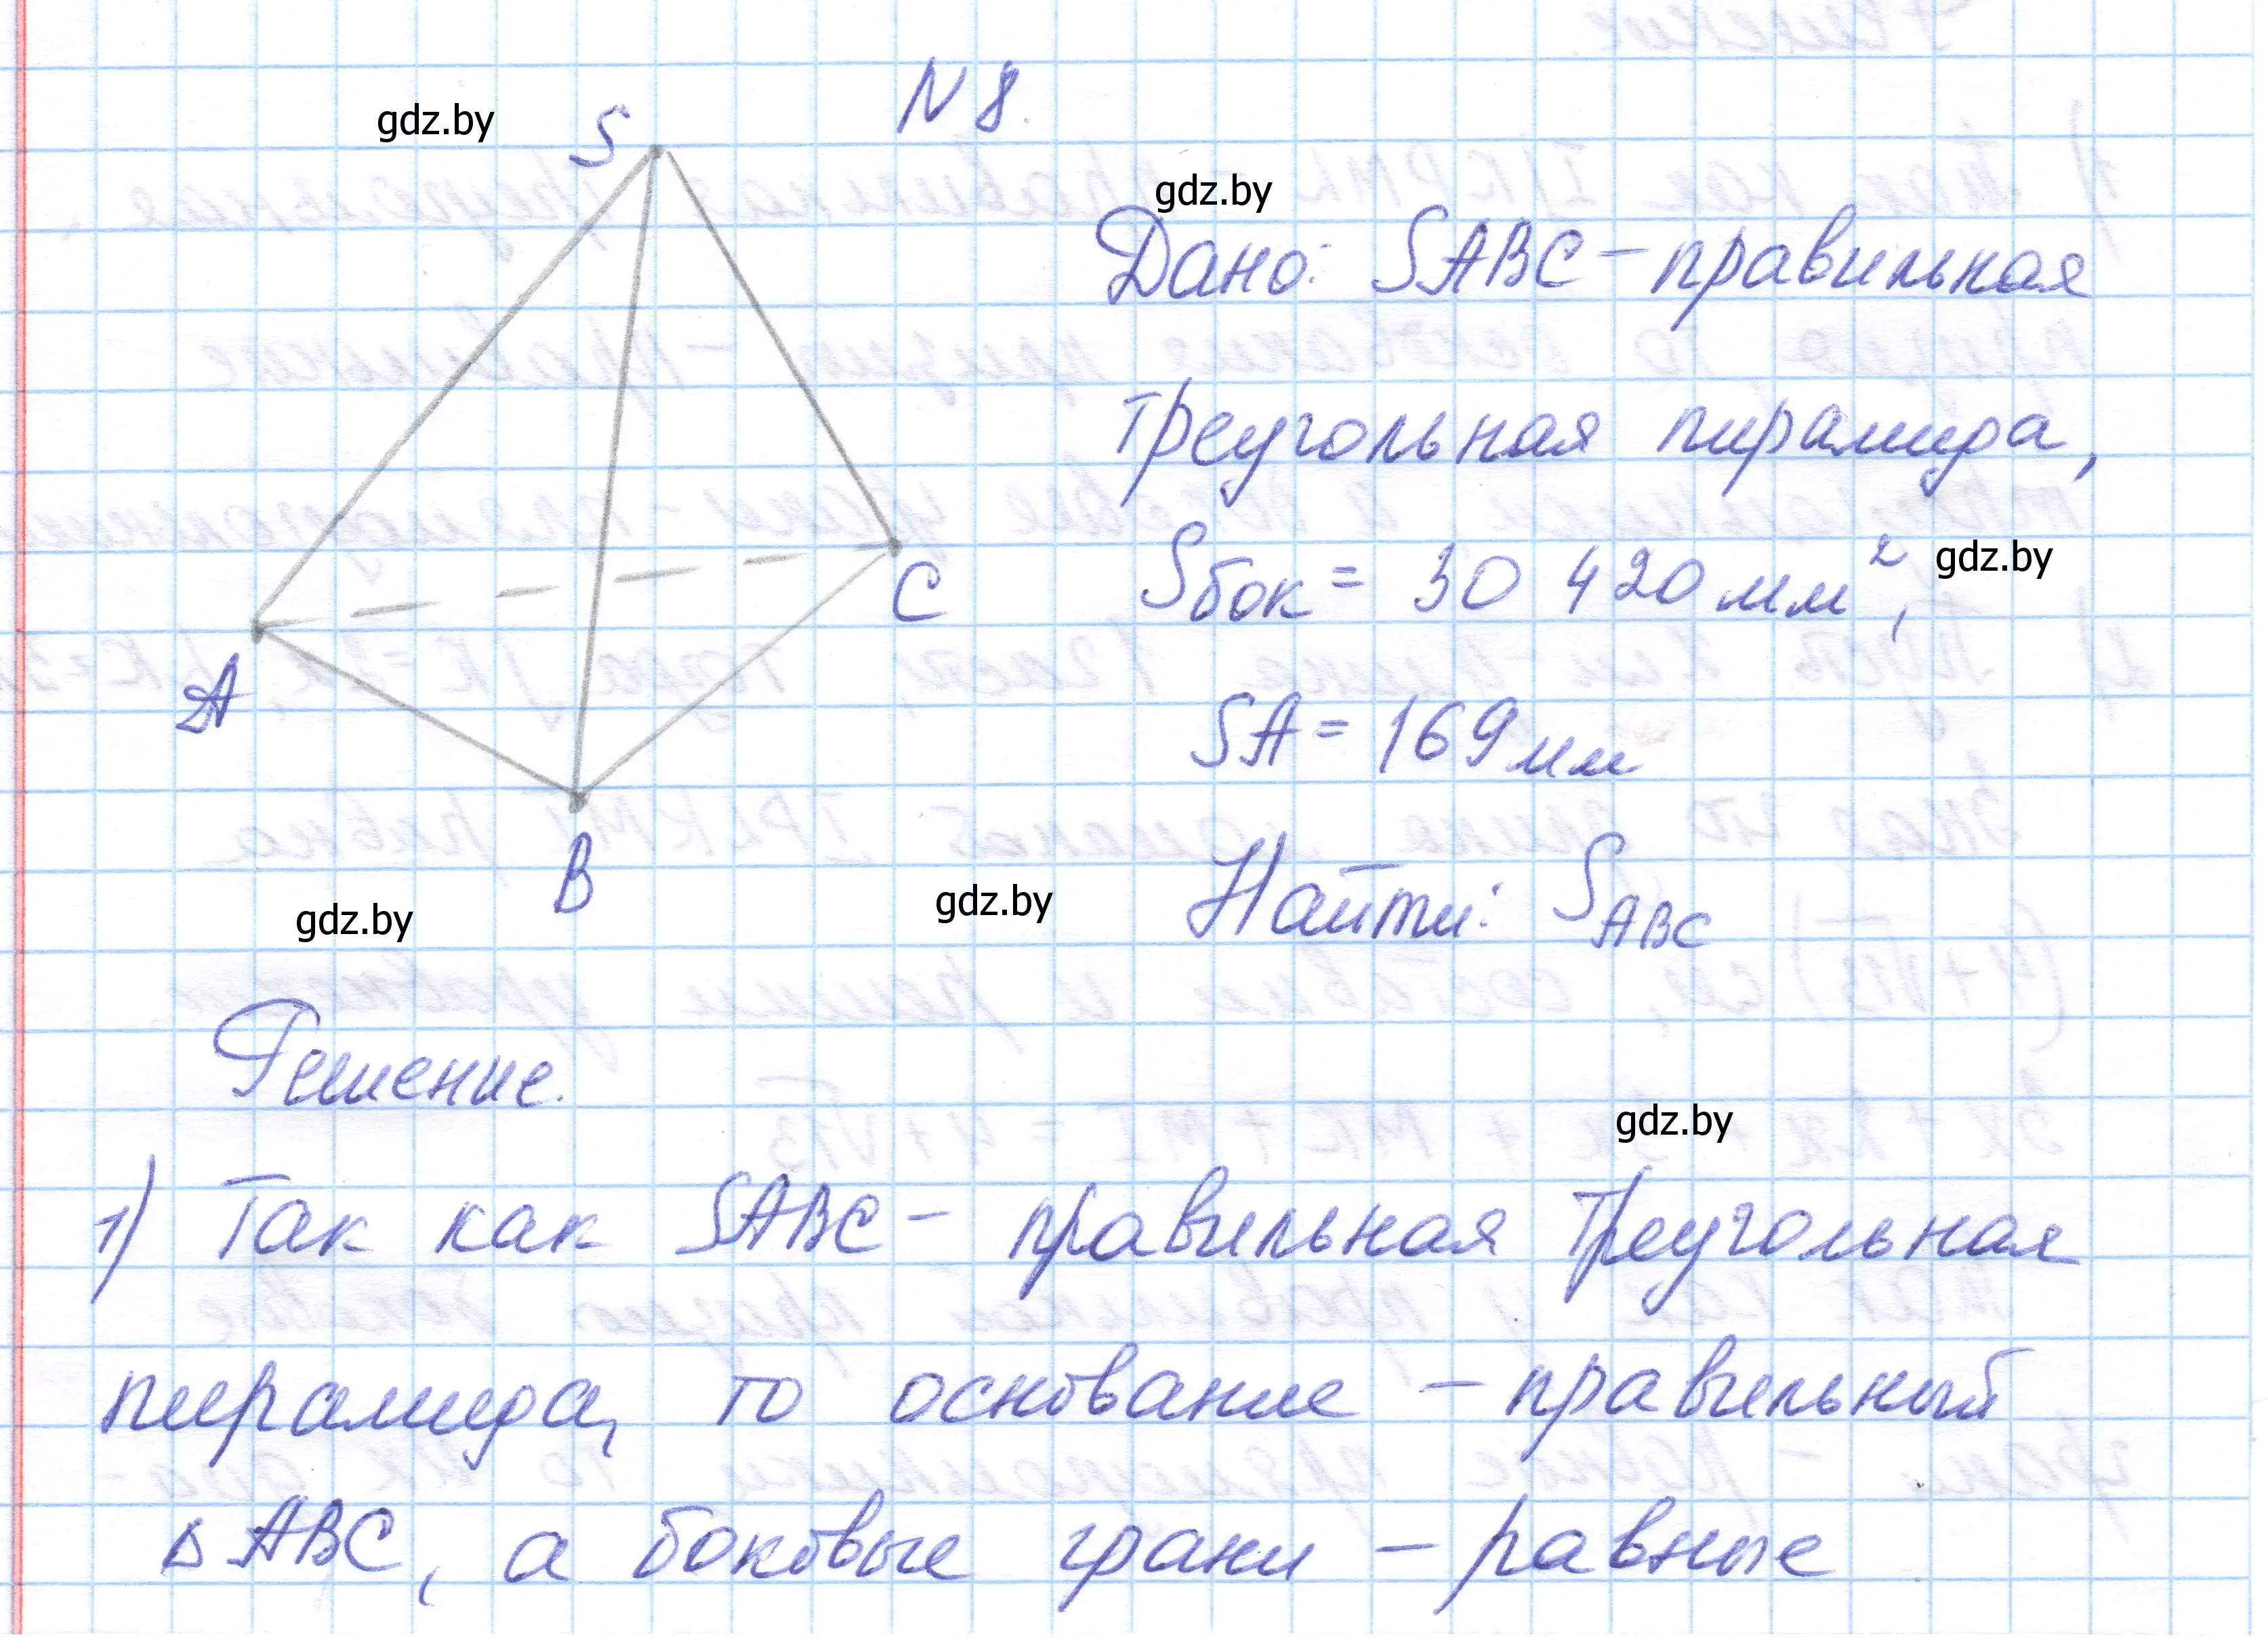 N 8.
gdz.by
S
gdz.by
Дано: SABC – правильная
треугольная пирамида,
Sбок = 30 420 мм²,
gdz.by
C
A
SA = 169 мм
B
Найти: S ABC
gdz.by
gdz.by
Решение.
gdz.by
1) Так как SABC – правильная треугольная
пирамида, то основание – правильный
△ ABC, а боковые грани – равные